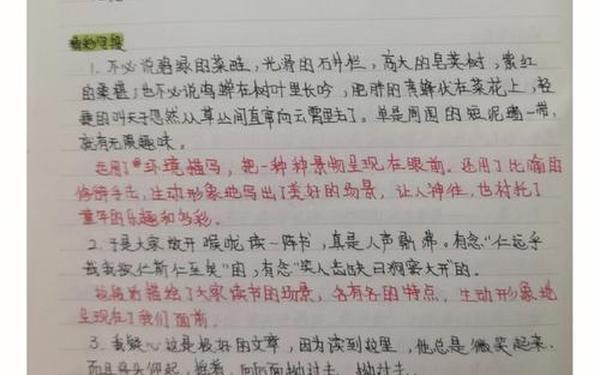 精彩片段
1. 不必说碧绿的菜畦，光滑的石井栏，高大的皂荚树，紫红
的桑葚；也不必说鸣蝉在树叶里长吟，肥胖的黄蜂伏在菜花上，轻
捷的叫天子忽然从草丛间直窜向云霄里去了。单是周围的短泥墙一带，
就有无限趣味。
运用了环境描写，把一种种景物呈现在眼前。还用了比喻的
修辞手法，生动形象地写出了美好的场景，让人神往，也衬托了
童年的乐趣和多彩。
2. 于是大家放开喉咙读一阵书，真是人声鼎沸。有念“仁远乎
哉我欲仁斯仁至矣”的，有念“笑人齿缺曰狗窦大开”的。
描绘了大家读书的场景，各有各的特点，生动形象地
呈现在了我们面前。
3. 我疑心这是极好的文章，因为读到这里，他总是微笑起来，
而且将头仰起，摇着，向后面拗过去，拗过去。